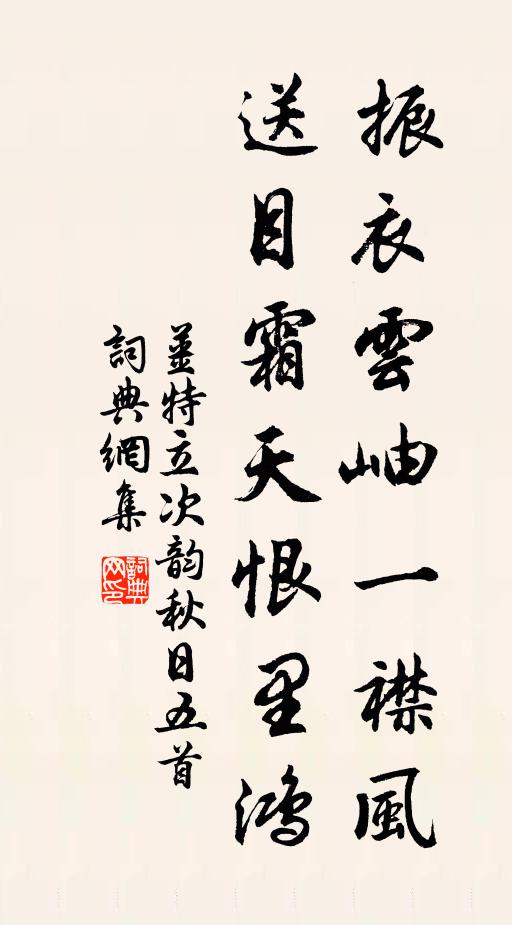 振衣雲岫一襟風
送目霜天恨里鴻
姜特立次韵秋日五首
詞典網集
詞典網印